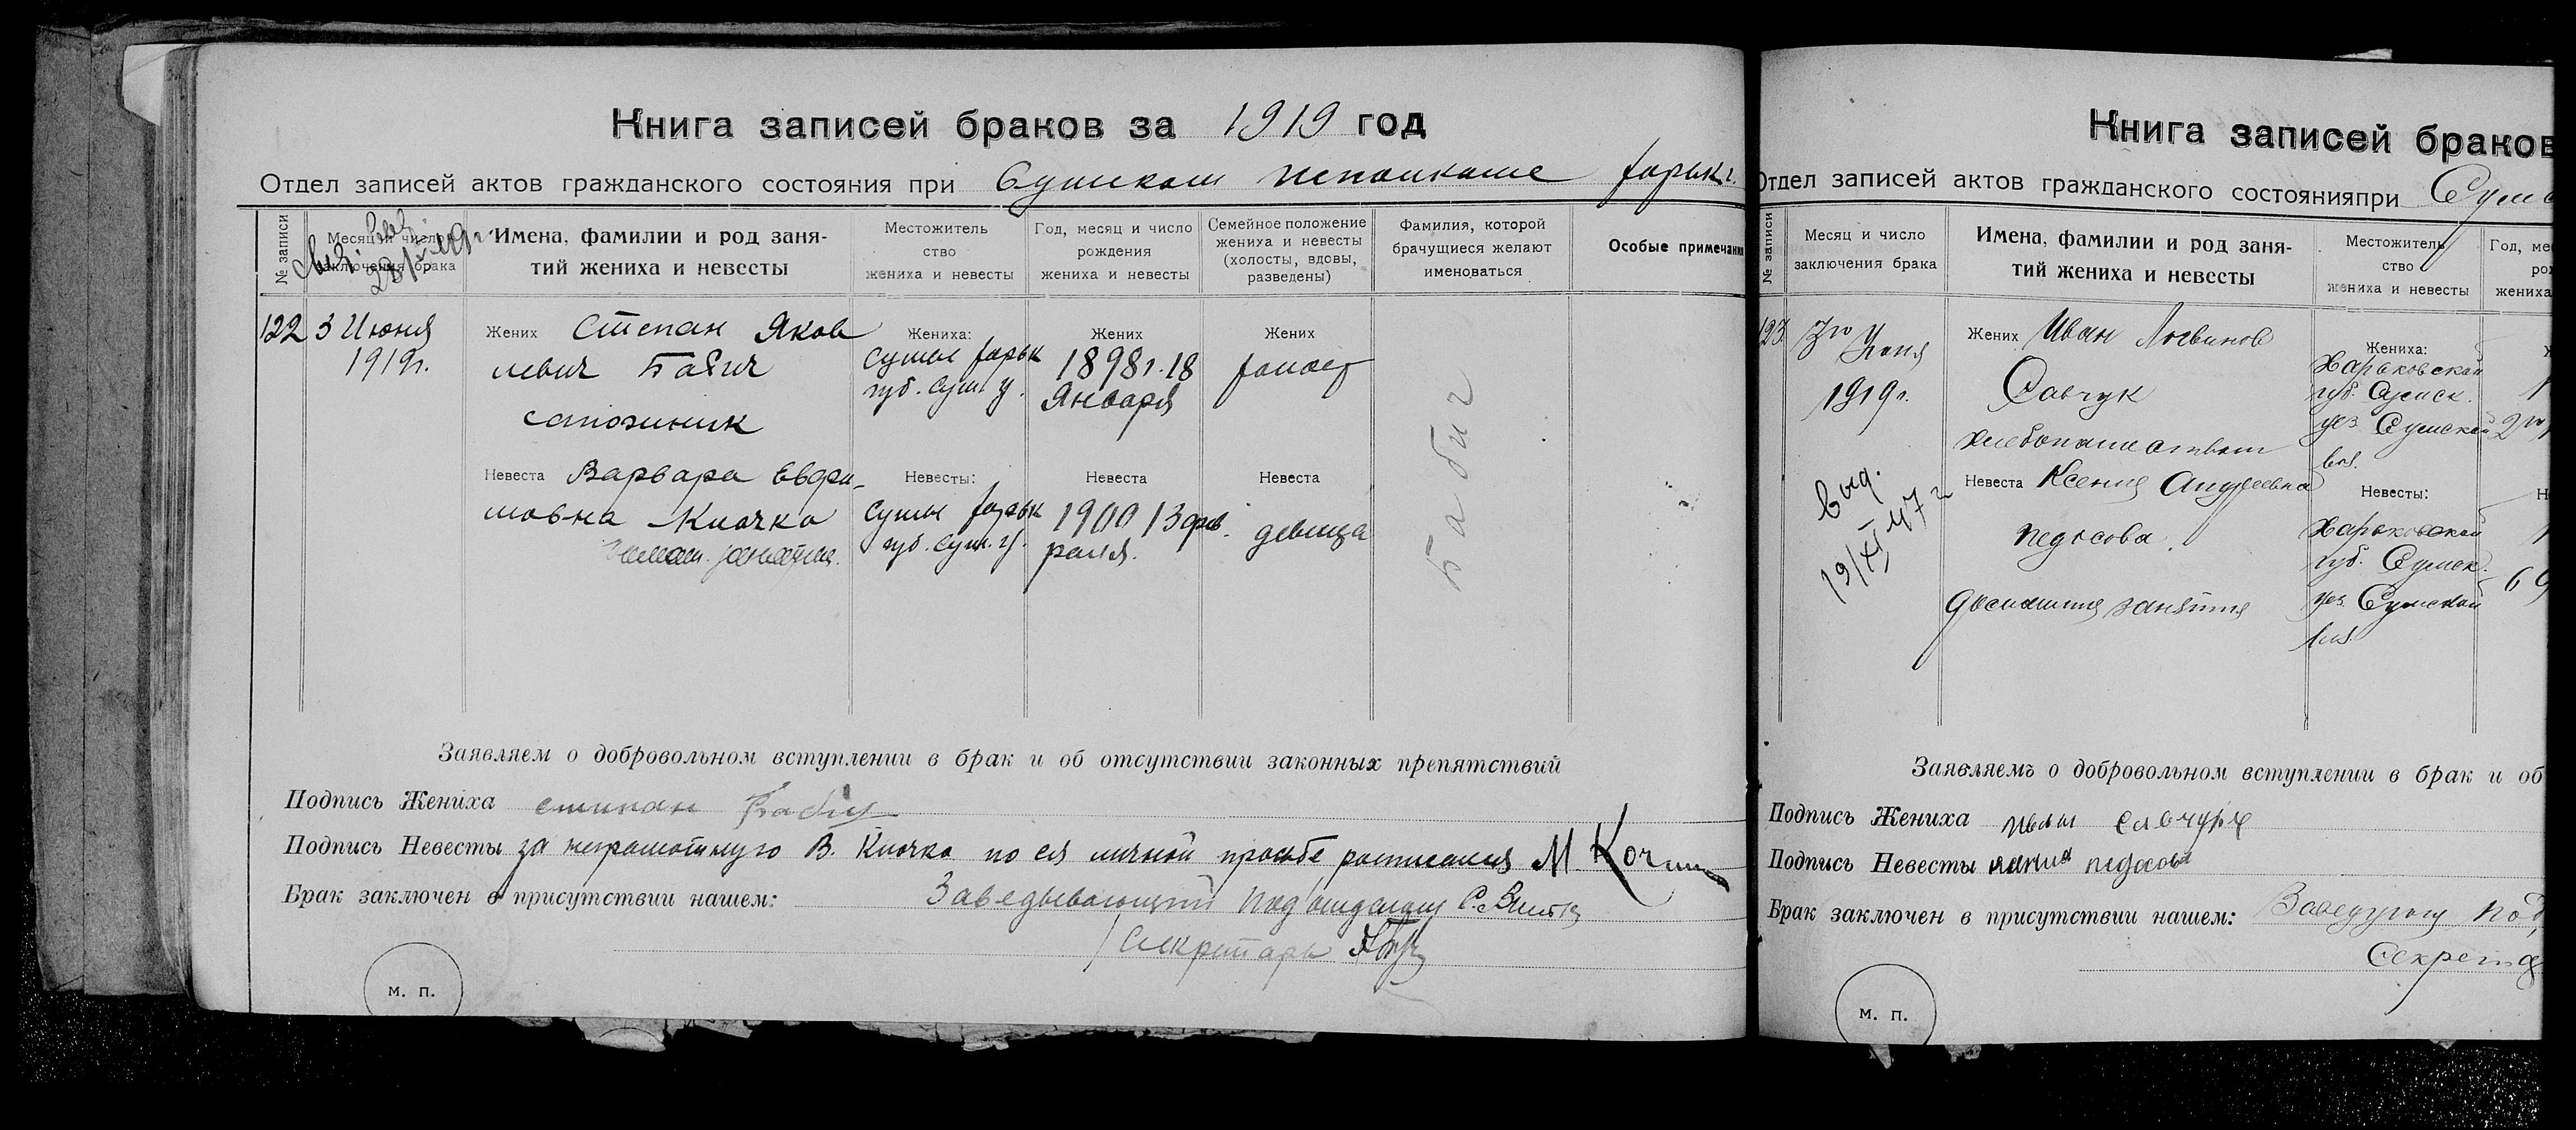 Книга записей браков за 1919 год
Отдел записей актов гражданского состояния при Сумском исполкоме Харьк г.
№ записи
Месяц и число
заключения брака
Имена, фамилии и род заня-
тий жениха и невесты
Местожитель
ство
жениха и невесты
Год, месяц и число
рождения
жениха и невесты
Семейное положение
жениха и невесты
(холосты, вдовы,
разведены)
Фамилия, которой
брачущиеся желают
именоваться
Особые примечани
122
3 Июня
1919г.
Жених Степан Яков
левич Бабич
сапожник
Жениха:
Сумы Харьк
губ. Сум. у.
Жених
1898г. 18
Января
Жених
холост
Невеста Варвара Евфи-
мовна Клочко
Невесты:
Сумы Харьк
губ. Сум. у.
Невеста
1900 13 фев
раля.
Невеста
девица
Бабич
Заявляем о добровольном вступлении в брак и об отсутствии законных препятствий
Подпись Жениха степан Бабич
Подпись Невесты за неграмотную В. Клочко по ея личной просьбе расписался М
Брак заключен в присутствии нашем: Заведывающий Подотделом
Секретарь
м. п.
Книга записей браков
Отдел записей актов гражданского состоянияпри Сумс
№ записи
Месяц и число
заключения брака
Имена, фамилии и род заня-
тий жениха и невесты
Местожитель
ство
жениха и невесты
Год, ме
ро
жениха
123
3го Юня
1919г.
Выд.
19/XI 47 г
Жених Иван Логвинов
Савчук
хлебопашеством
Жениха:
Харьковской
губ. Сумск.
уез. Сумской
вол.
2го
Невеста Ксения Андреевна
Педосова
домашние занятия
Невесты:
Харьковской
губ. Сумск.
уез. Сумской
вол.
6
Заявляемъ о добровольном вступлении в брак и об
Подпись Жениха Иван Савчук
Подпись Невесты педосова
Брак заключен в присутствии нашем: Заведующ Под
Секрета
м. п.